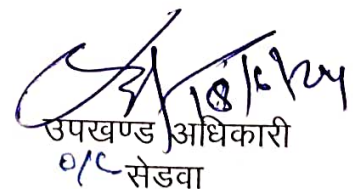 18/6/24
उपखण्ड अधिकारी
O/C सेडवा